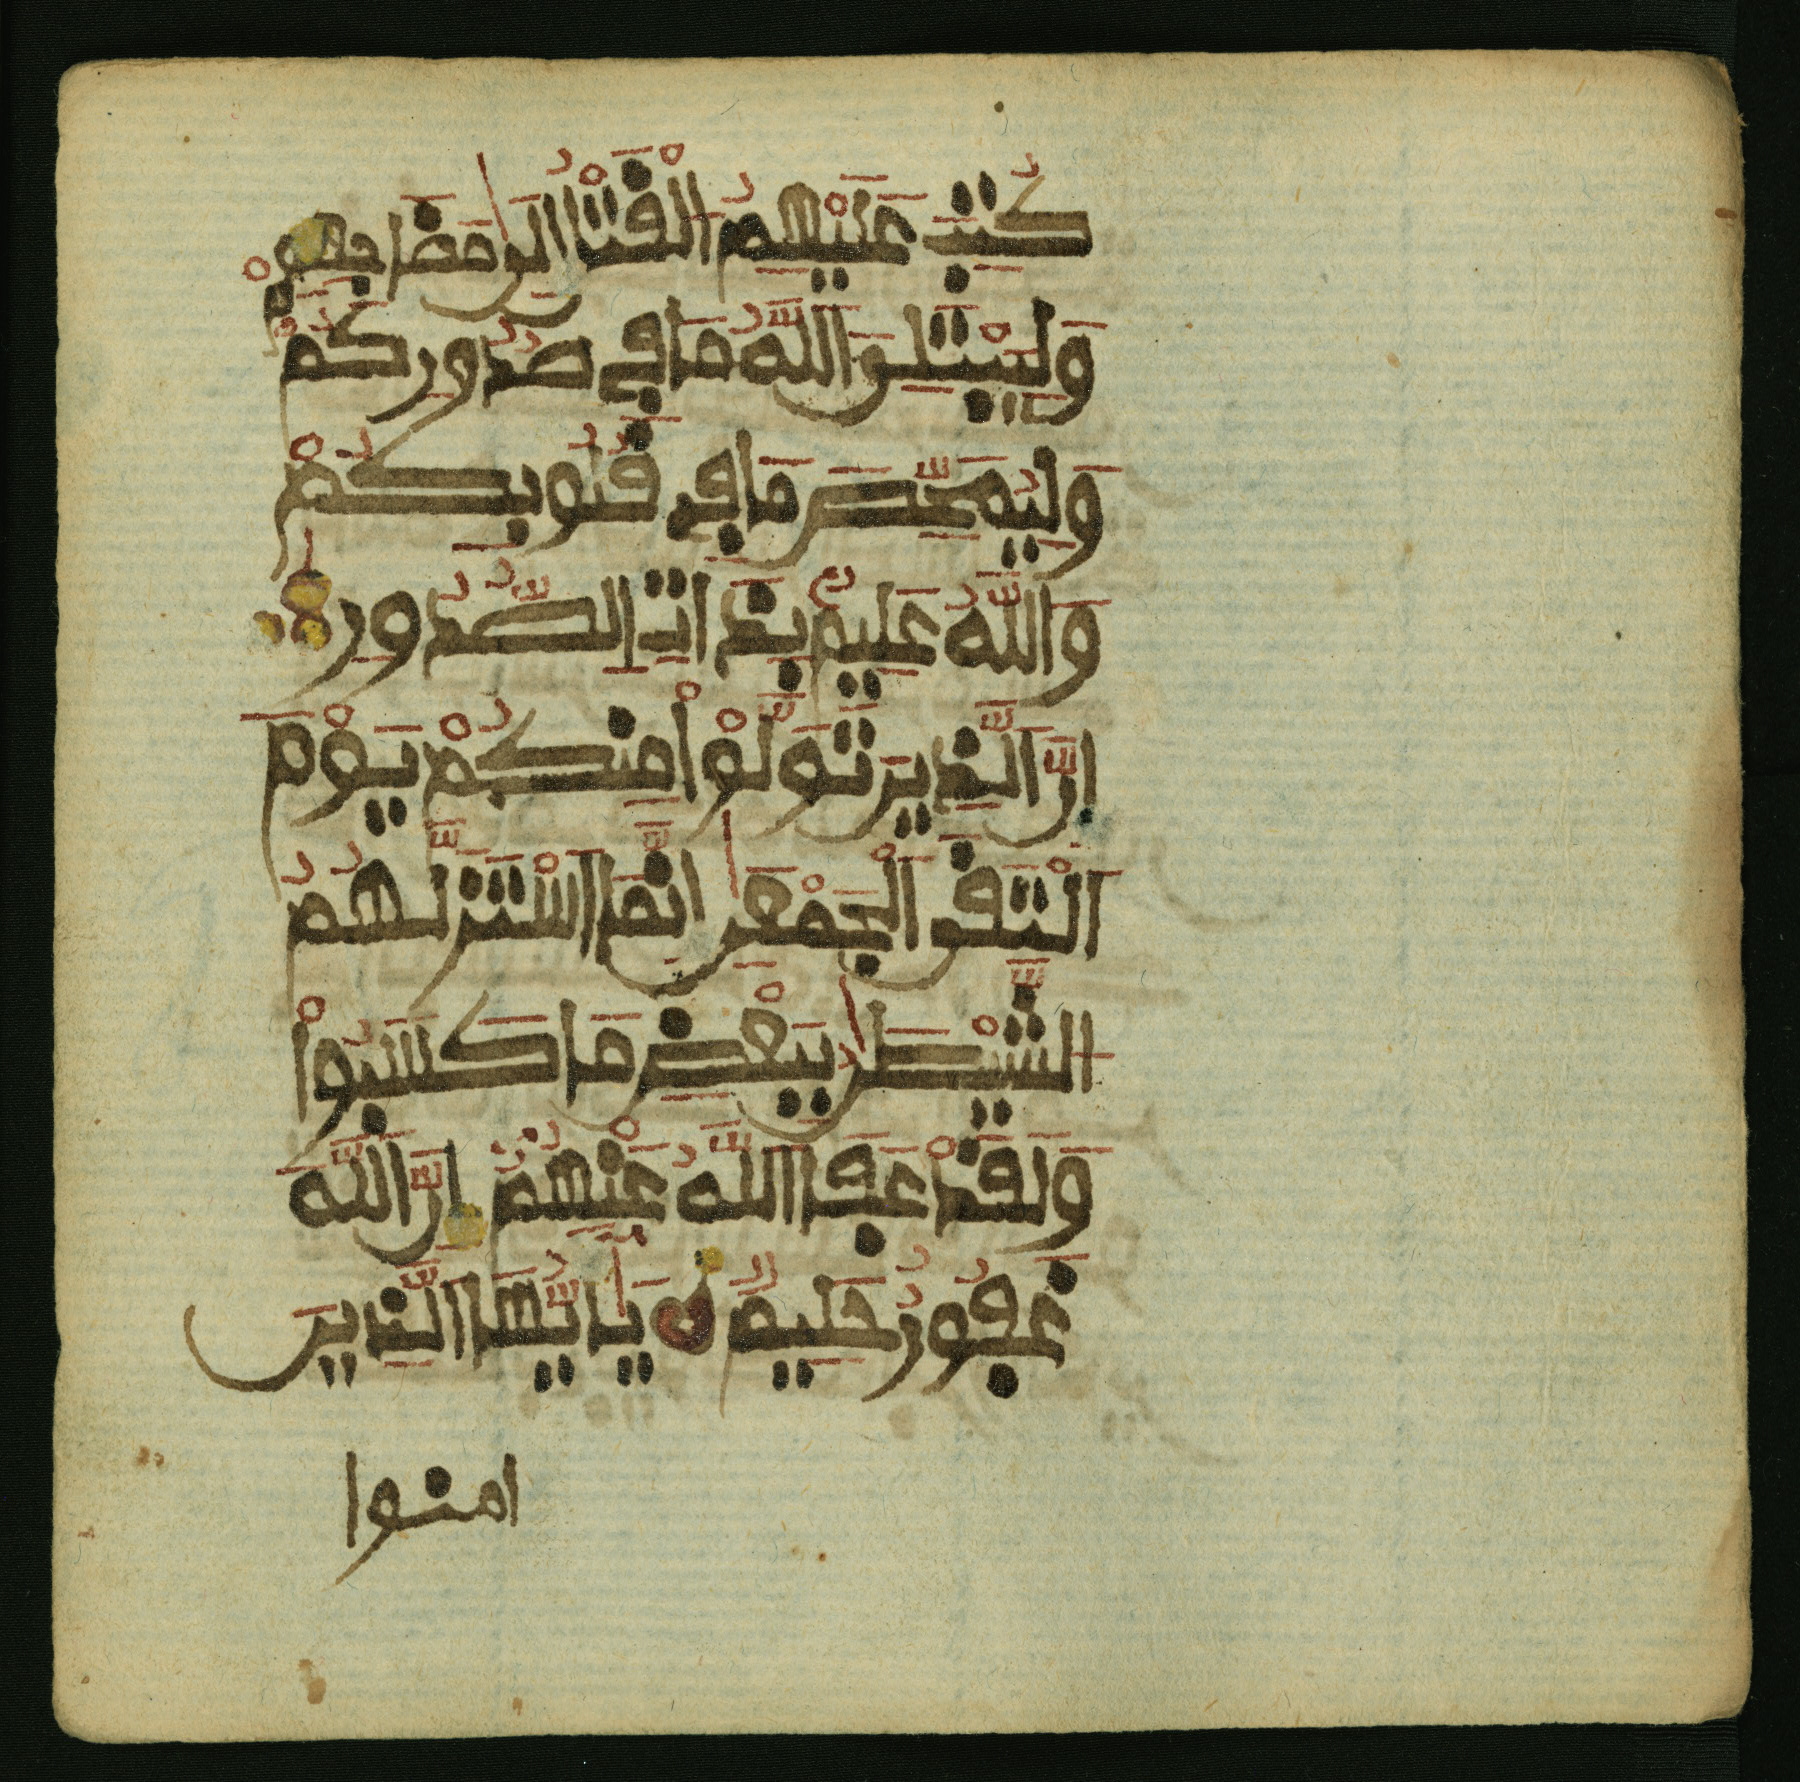 كُتِبَ عَلَيْهِمُ الْقَتْلُ إِلَىٰ مَضَاجِعِهِمْ
وَلِيَبْتَلِيَ اللَّهُ مَا فِي صُدُورِكُمْ
وَلِيُمَحِّصَ مَا فِي قُلُوبِكُمْ
وَاللَّهُ عَلِيمٌ بِذَاتِ الصُّدُورِ
إِنَّ الَّذِينَ تَوَلَّوْا مِنكُمْ يَوْمَ
الْتَقَى الْجَمْعَٰنِ إِنَّمَا اسْتَزَلَّهُمُ
الشَّيْطَٰنُ بِبَعْضِ مَا كَسَبُوا
وَلَقَدْ عَفَا اللَّهُ عَنْهُمْ إِنَّ اللَّهَ
غَفُورٌ حَلِيمٌ يَٰأَيُّهَا الَّذِينَ
امنوا